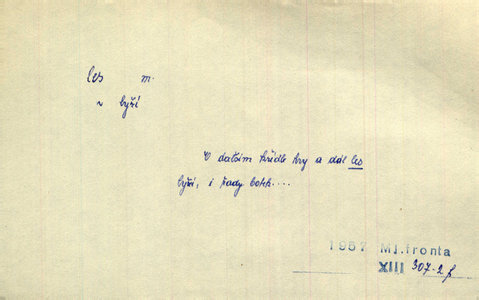 les m.
~ lyží
V dalším křídle hry a dál les
lyží, i řady bot....
1957 Ml.fronta
XIII 307-2.f